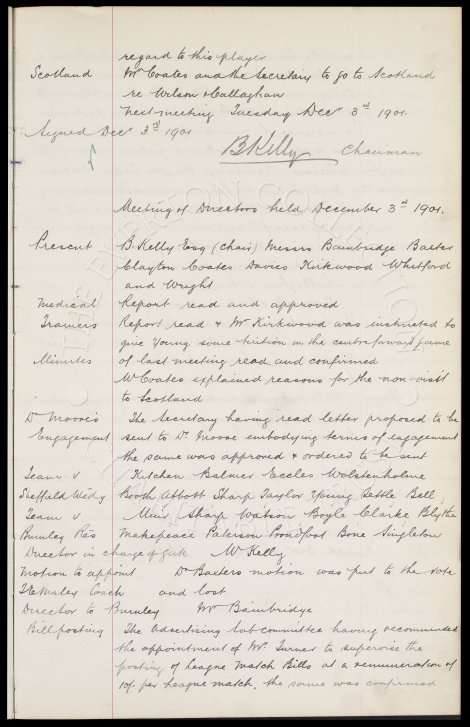 regard to this player
Scotland Mr Coates and the Secretary to go to Scotland
re Wilson & Callaghan
Next meeting Tuesday Decr 3rd 1901.
Signed Decr 3rd 1901
B Kelly Chairman
Meeting of Directors held December 3rd 1901.
Present B. Kelly Esq (Chair) Messrs Bainbridge Baxter
Clayton Coates Davies Kirkwood Whitford
and Wright
Medical Report read and approved
Trainers Report read & Mr Kirkwood was instructed to
give Young some tuition in the centre forward game
Minutes of last meeting read and confirmed
Mr Coates explained reasons for the non-visit
to Scotland
Dr Moore's The Secretary having read letter proposed to be
Engagement sent to Dr Moore embodying terms of engagement
the same was approved & ordered to be sent
Team v Kitchen Balmer Eccles Wolstenholme
Sheffield Wedy Booth Abbott Sharp Taylor Young Settle Bell
Team v Muir Sharp Watson Boyle Clarke Blythe
Burnley Res Makepeace Paterson Proudfoot Bone Singleton
Director in charge of gate Mr Kelly
Motion to appoint Dr Baxters motion was put to the vote
Coach and lost
Director to Burnley Mr Bainbridge
Bill posting The advertising Sub committee having recommended
the appointment of Mr Turner to supervise the
posting of League Match Bills at a remuneration of
10/- per league match, the same was confirmed